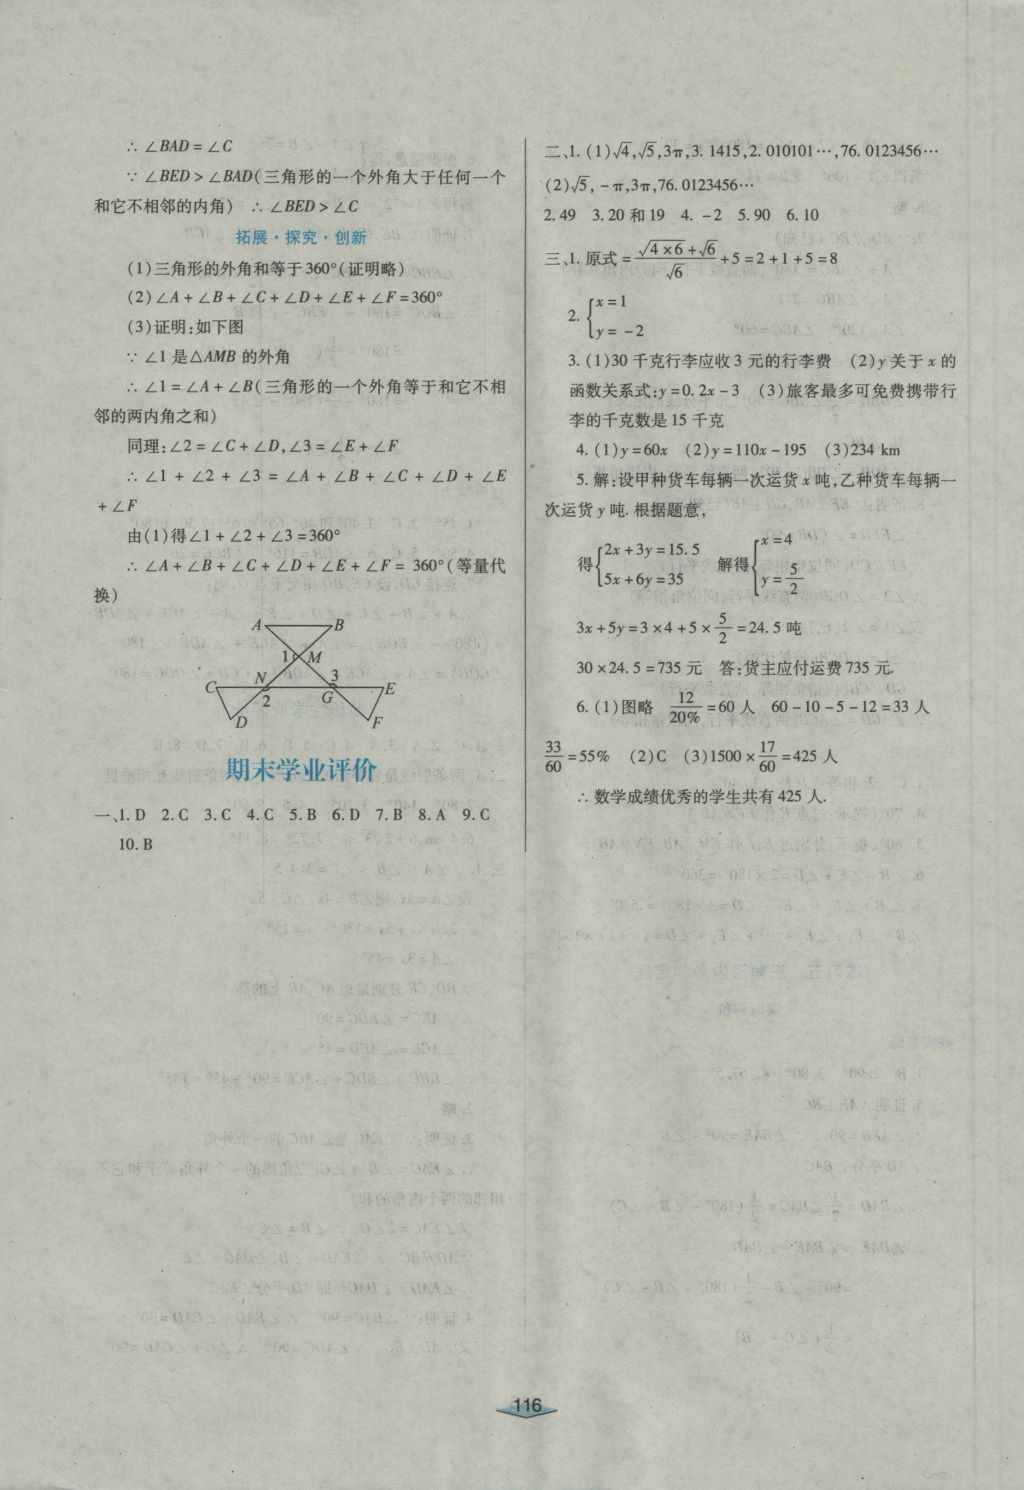 ∴ ∠BAD=∠C
∵ ∠BED>∠BAD(三角形的一个外角大于任何一个
和它不相邻的内角) ∴ ∠BED>∠C
拓展·探究·创新
(1)三角形的外角和等于360°(证明略)
(2)∠A+∠B+∠C+∠D+∠E+∠F=360°
(3)证明:如下图
∵ ∠1是△AMB的外角
∴ ∠1=∠A+∠B(三角形的一个外角等于和它不相
邻的两内角之和)
同理:∠2=∠C+∠D,∠3=∠E+∠F
∴ ∠1+∠2+∠3=∠A+∠B+∠C+∠D+∠E
+∠F
由(1)得∠1+∠2+∠3=360°
∴ ∠A+∠B+∠C+∠D+∠E+∠F=360°(等量代
换)
A B
1 M
N 3
C 2 G E
D F
期末学业评价
一、1. D 2. C 3. C 4. C 5. B 6. D 7. B 8. A 9. C
10. B
二、1. (1)√4,√5,3π,3.1415,2.010101…,76.0123456…
(2)√5,-π,3π,76.0123456…
2. 49 3. 20和19 4. -2 5. 90 6. 10
三、1. 原式=(√(4×6)+√6)/√6+5=2+1+5=8
2. {x=1
y=-2
3. (1)30千克行李应收3元的行李费 (2)y关于x的
函数关系式:y=0.2x-3 (3)旅客最多可免费携带行
李的千克数是15千克
4. (1)y=60x (2)y=110x-195 (3)234 km
5. 解:设甲种货车每辆一次运货x吨,乙种货车每辆一
次运货y吨. 根据题意,
得{2x+3y=15.5 解得{x=4
5x+6y=35 y=5/2
3x+5y=3×4+5×5/2=24.5吨
30×24.5=735元 答:货主应付运费735元.
6. (1)图略 12/20%=60人 60-10-5-12=33人
33/60=55% (2)C (3)1500×17/60=425人
∴ 数学成绩优秀的学生共有425人.
116